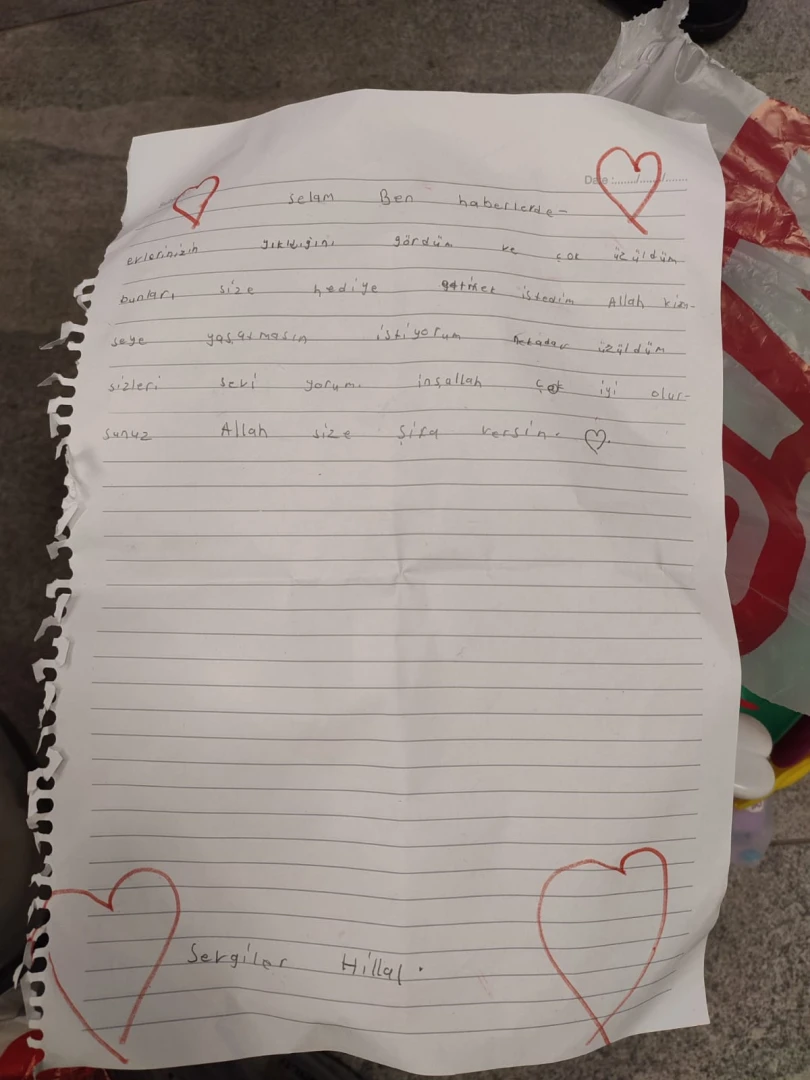 Date :......../......../........
selam Ben haberlerde-
evlerinizin yıkıldığını gördüm ve çok üzüldüm
bunları size hediye getimek istedim Allah kim-
seye yaşatmasın istiyorum nekadar üzüldüm
sizleri sevi yorum. inşallah çok iyi olur-
sunuz Allah size şifa versin. ♡.
Sevgiler Hillal.